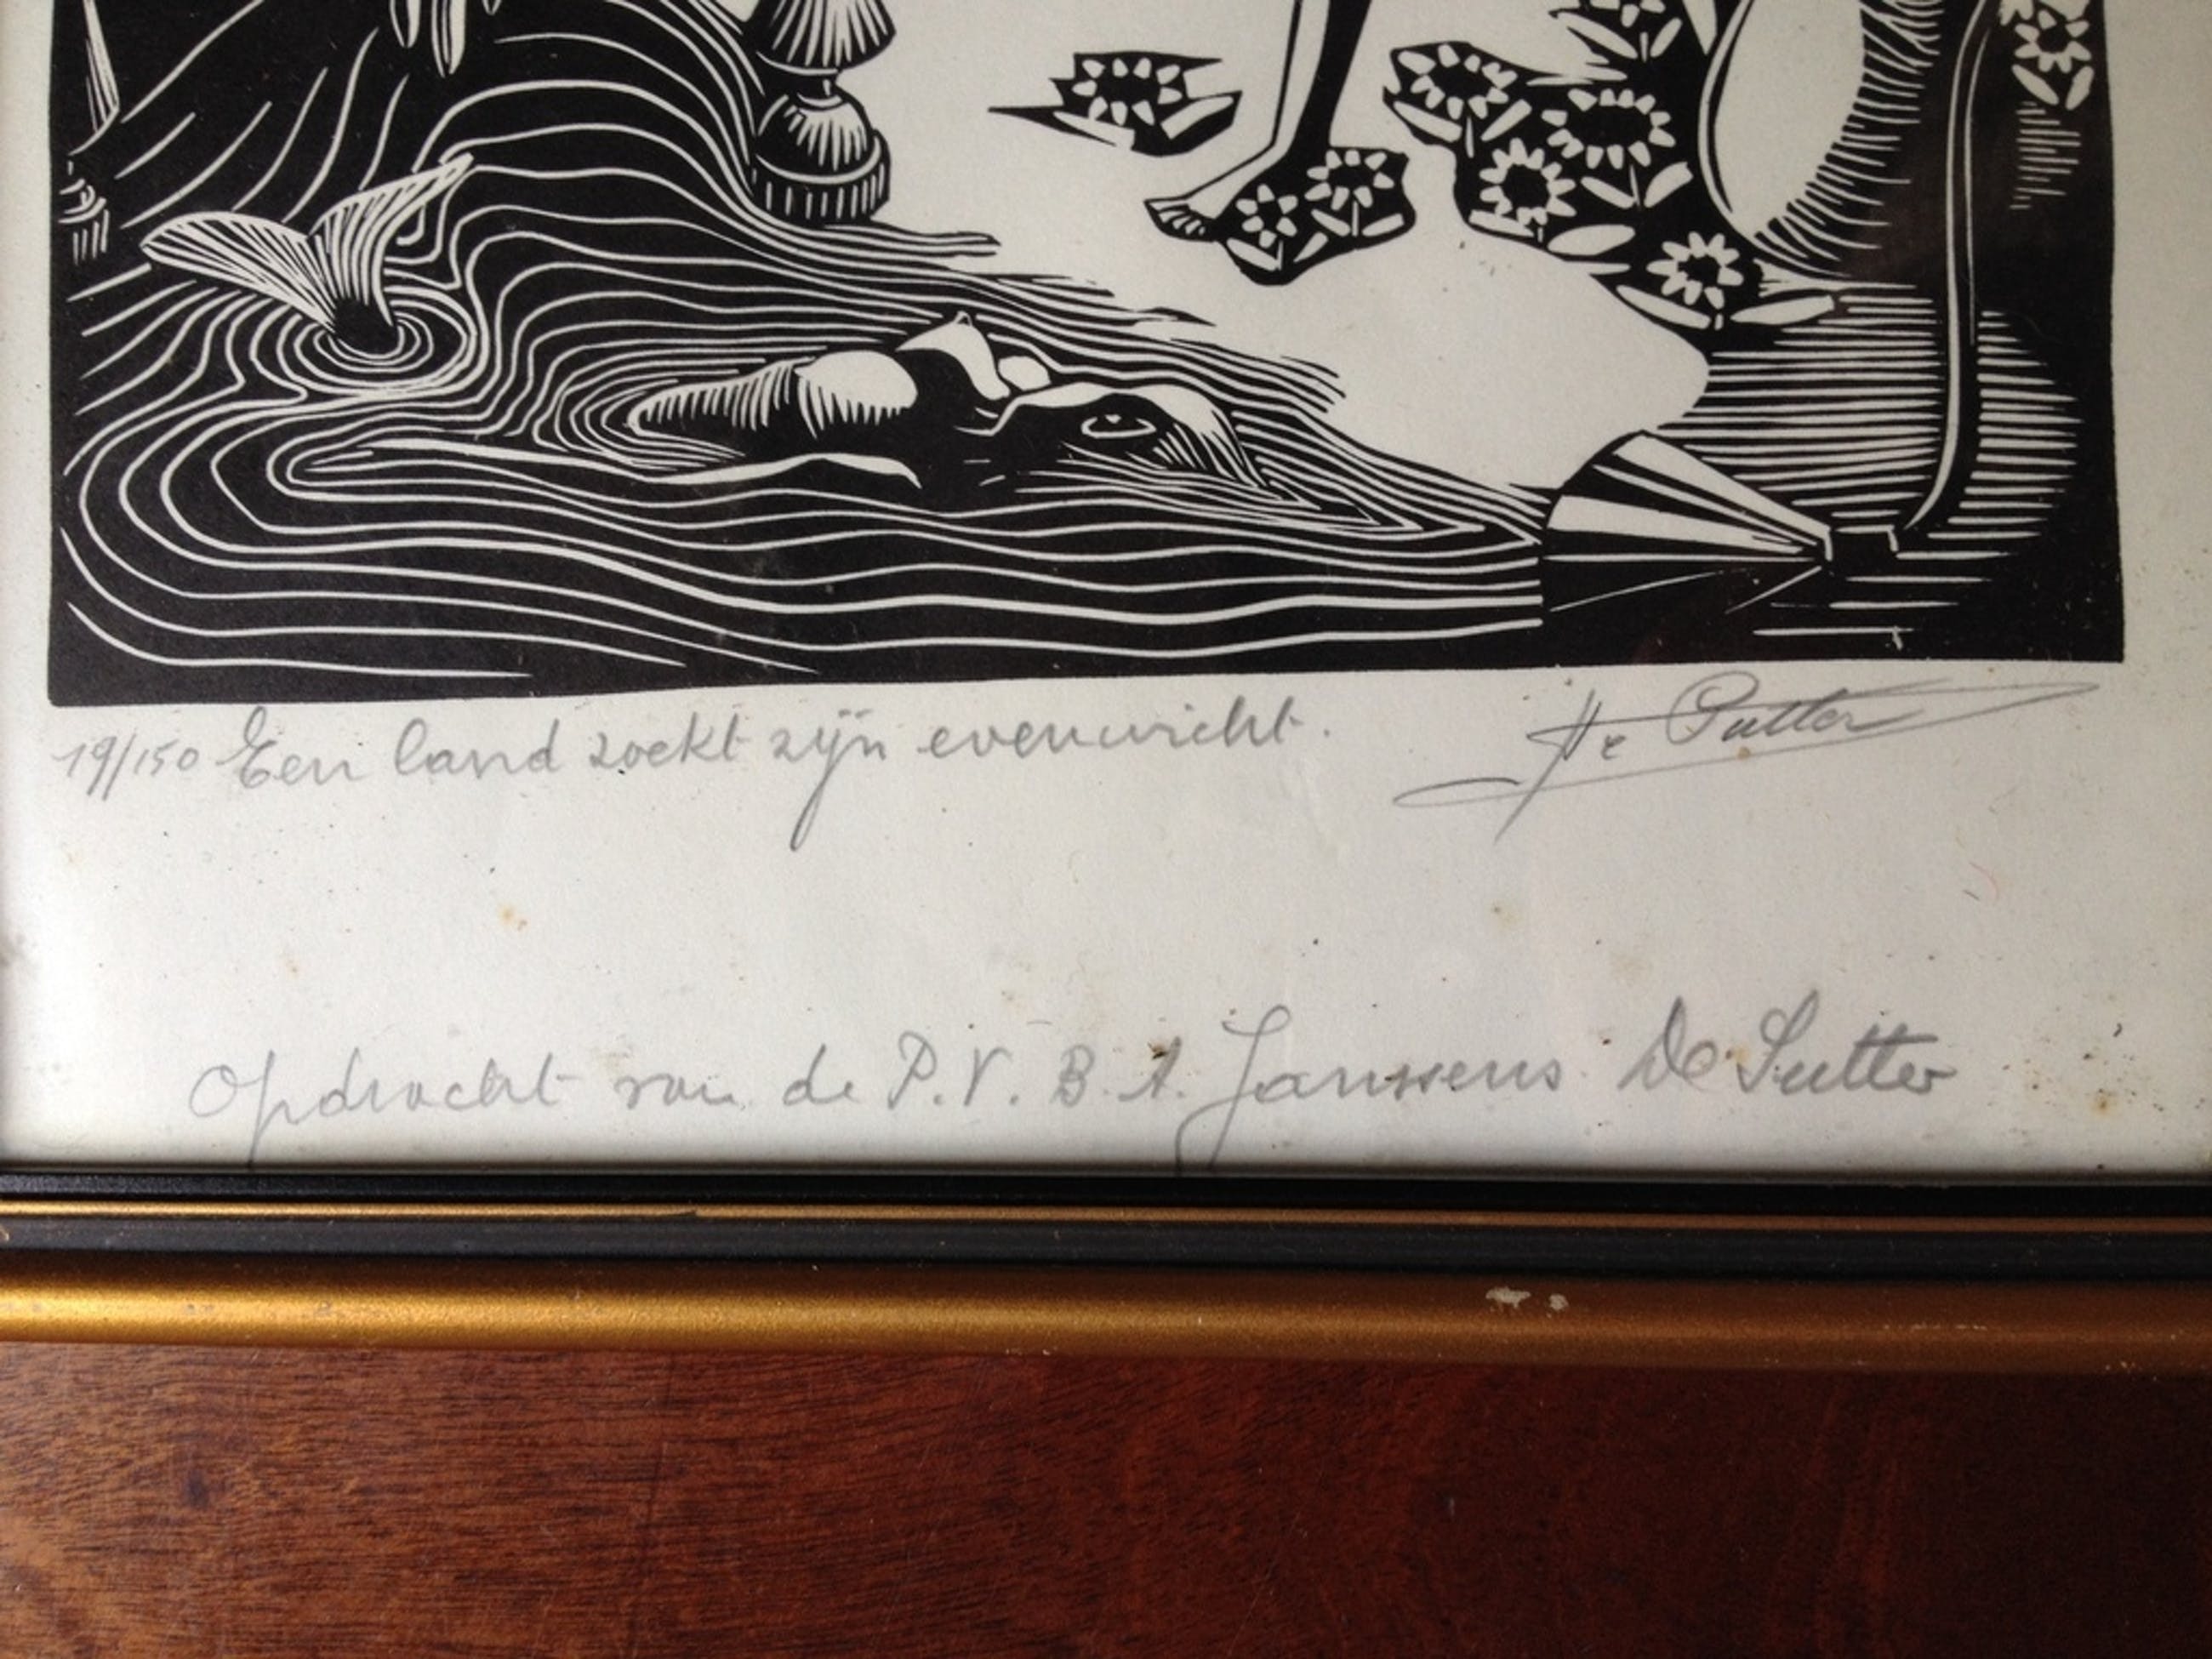 19/150 Een land zoekt zijn evenwicht. De Sutter
Opdracht van de P.V.B.A. Janssens De Sutter